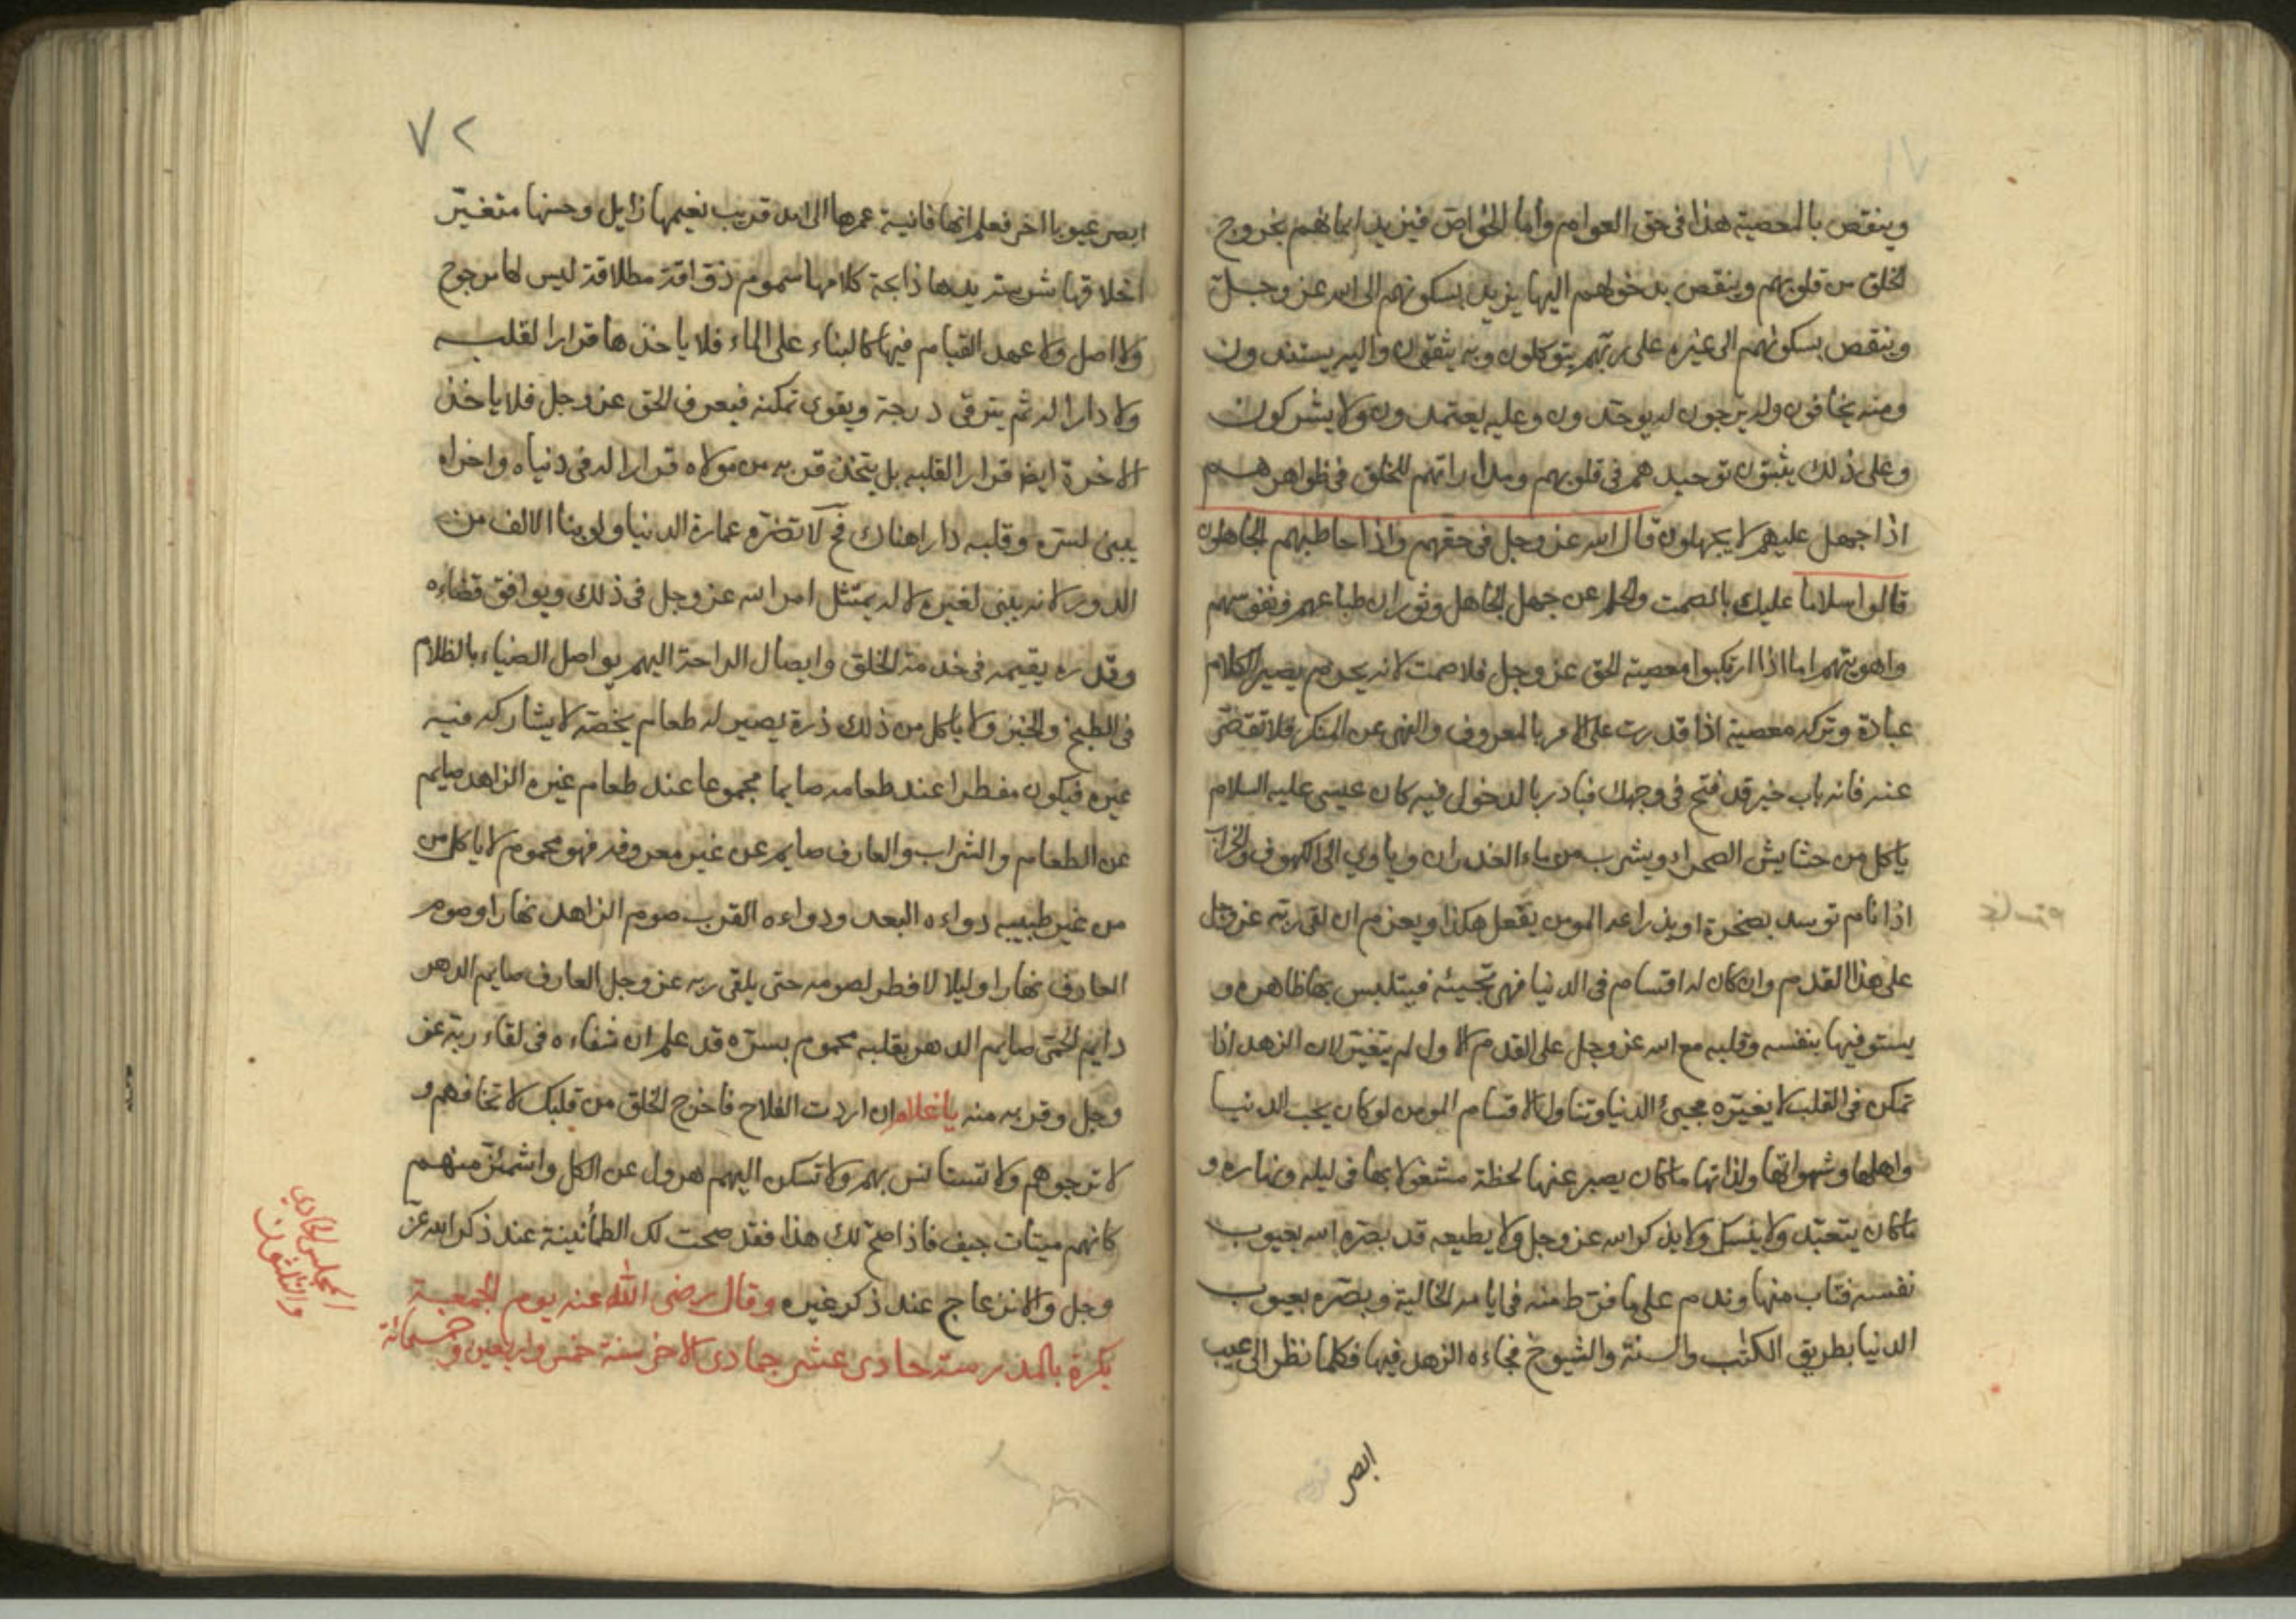 وينقص بالمعصية هذا فى حق العوام وأما الخواص فيزيد ايمانهم بخروج
الخلق من قلوبهم وينقص بدخولهم اليها يزيد بسكونهم الى الله عز وجل
وينقص بسكونهم الى غيره على ربهم يتوكلون وبه يثقون واليه يستندون
ومنه يخافون وله يرجون له يوحدون وعليه يعتمدون ولا يشركون
وعلى ذلك يثبتون توحيدهم فى قلوبهم ومداراتهم للخلق فى ظواهرهم
اذا جهل عليهم لا يجهلون قال الله عز وجل فى حقهم واذا خاطبهم الجاهلون
قالوا سلاما عليك بالصمت والحلم عن جهل الجاهل وثوران طباعهم ونفوسهم
واهويتهم اما اذا ارتكبوا معصية الحق عز وجل فلا صمت لانه يحرم يصير الكلام
عبادة وتركه معصية اذا قدرت على الامر بالمعروف والنهى عن المنكر فلا تقصر
عنه فانه باب خير قد فتح فى وجهك فبادر بالدخول فيه كان عيسى عليه السلام
ياكل من حشايش الصحراء ويشرب من ماء الغدران وياوي الى الكهوف والخراب
اذا نام توسد بصخرة او بذراعه المومن يفعل هكذا ويعزم ان لقى ربه عز وجل
على هذا القدم وان كان له اقسام فى الدنيا فهى تجيئه فيتلبس بها ظاهره و
يستوفيها بنفسه وقلبه مع الله عز وجل على القدم الاول لم يتغير لان الزهد اذا
تمكن فى القلب لا يغيره مجيئ الدنيا وتناول الاقسام المومن لو كان يحب الدنيا
واهلها وشهواتها ولذاتها ما كان يصبر عنها لحظة مشغولا بها فى ليله ونهاره و
ما كان يتعبد ولا ينسك ولا يذكر الله عز وجل ولا يطيعه قد بصره الله بعيوب
نفسه فتاب منها وندم على ما فرط منه فى ايامه الخالية وبصره بعيوب
الدنيا بطريق الكتب والسنة والشيوخ فجاءه الزهد فيها فكلما نظر الى عيب
ابصر
٧٢
ابصر عيوبا اخر فعلم انها فانية عمرها الى امد قريب نعيمها زايل وحسنها متغير
اخلاقها شرسة يدها ذابحة كلامها سموم ذواقة مطلاقة ليس لها مرجوع
ولا اصل ولا عهد القيام فيها كالبناء على الماء فلا ياخذها قرارا لقلبه
ولا دارا له ثم يترقى درجة ويقوى تمكنه فيعرف الحق عز وجل فلا ياخذ
الاخرة ايضا قرارا لقلبه بل يتخذ قربه من مولاه قرارا له فى دنياه واخراه
يبنى لسره وقلبه دارا هناك فح لا تضره عمارة الدنيا ولو بنا الالف من
الدور لانه يبنى لغيره لا له يمتثل امر الله عز وجل فى ذلك ويوافق قضاءه
وقدره يقيمه فى خدمة الخلق وايصال الراحة اليهم يواصل الضياء بالظلام
فى الطبخ والخبز ولا ياكل من ذلك ذرة يصير له طعام يخصه لا يشاركه فيه
غيره فيكون مفطرا عند طعامه صايما مجموعا عند طعام غيره الزاهد صايم
عن الطعام والشراب والعارف صايم عن غير معروفه فهو محموم لا ياكل من
من غير طبيبه دواءه البعد ودواءه القرب صوم الزاهد نهارا وصوم
العارف نهارا وليلا لا فطر لصومه حتى يلقى ربه عز وجل العارف صايم الدهر
دايم الحمى صايم الدهر بقلبه محموم بسره قد علم ان شفاءه فى لقاء ربه عز
وجل وقربه منه يا غلام ان اردت الفلاح فاخرج الخلق من قلبك لا تخافهم و
لا ترجوهم ولا تستانس بهم ولا تسكن اليهم هرول عن الكل واشمئز منهم
كانهم ميتات جيف فاذا صح لك هذا فقد صحت لك الطمأنينة عند ذكر الله عز
وجل والانزعاج عند ذكر غيره وقال رضى الله عنه يوم الجمعة
بكرة بالمدرسة حادى عشر جمادى الاخر سنة خمس واربعين وخمسمائة
المجلس الحادي
والثلثون